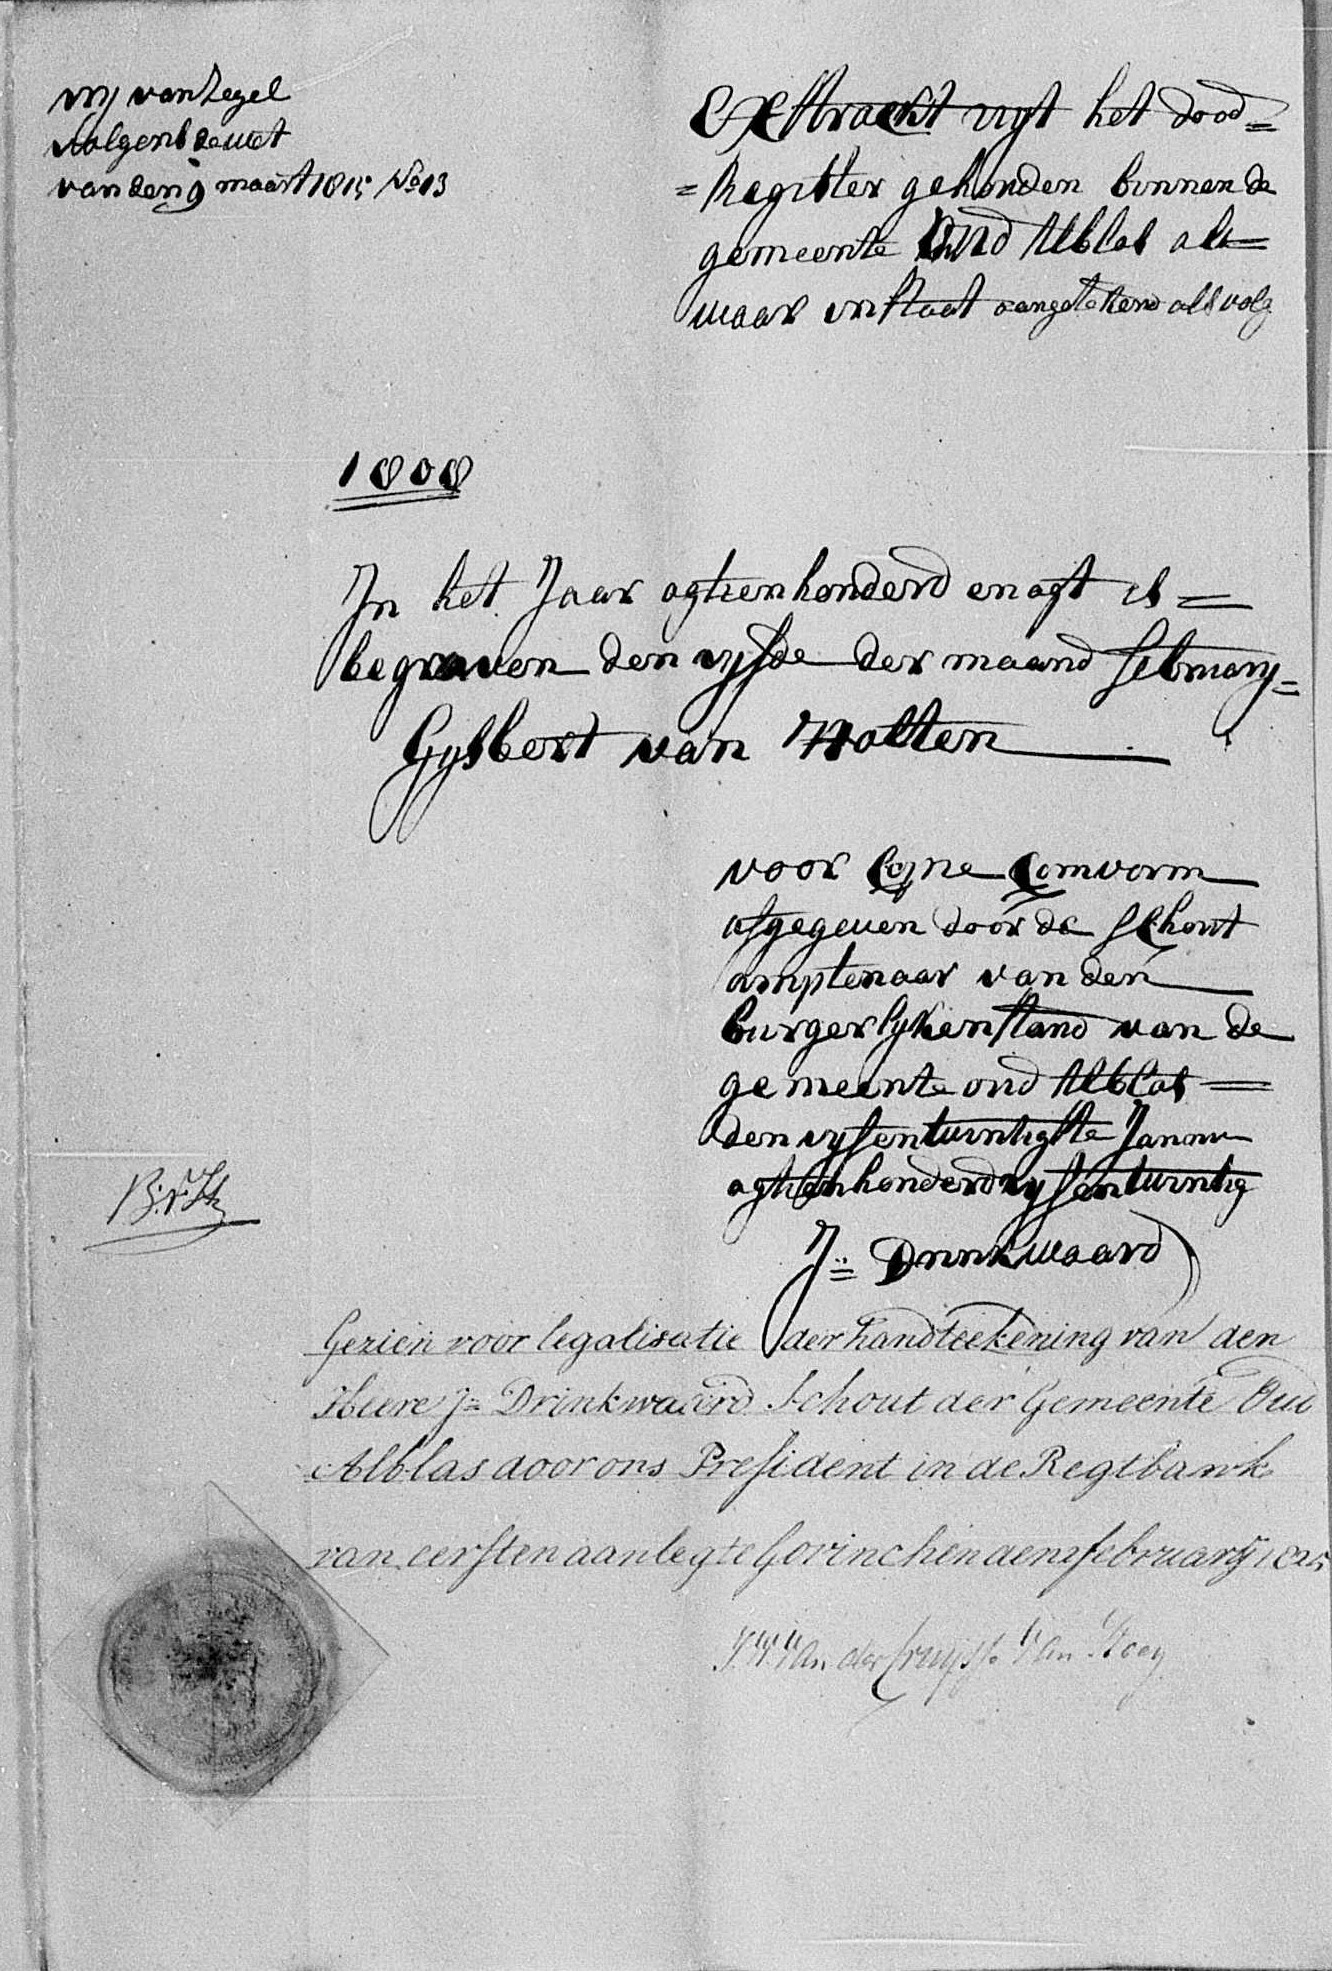 vrij van Zegel
volgens de wet
van den 9 maart 1815 No 13
Extrackt uyt het dood=
=Register gehouden binnen de
gemeente Oud Alblas al=
waar in staat aangetekend als volg
1808
In het Jaar agtienhonderd en agt is=
begraven den vyfde der maand februarij=
Gysbert van Houten
voor Copie Comvorm
afgegeven door de Schout
amptenaar van den
burgerlykenstand van de
gemeente oud Alblas=
den vyfentwintigste Janu
agtienhonderdvyfentwintig
J:= Drinkwaard
Gezien voor legalisatie der handteekening van den
Heere J= Drinkwaard Schout der Gemeente Oud
Alblas door ons President in de Regtbank
van eersten aanleg te Gorinchem den februarij 1825
van der Cruijsse van